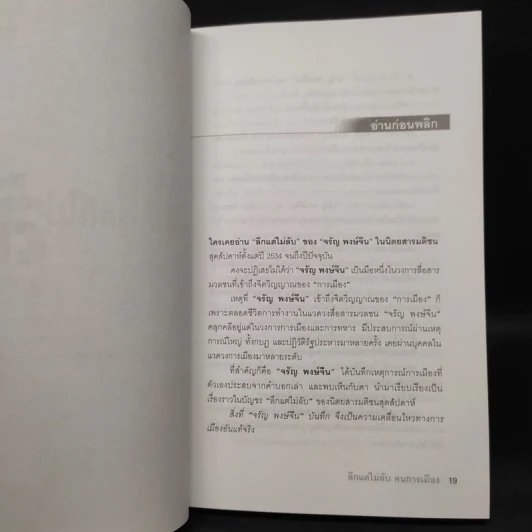 อ่านก่อนพลิก
ใครเคยอ่าน "ลึกแต่ไม่ลับ" ของ "จรัญ พงษ์จีน" ในนิตยสารมติชน
สุดสัปดาห์ตั้งแต่ปี 2534 จนถึงปีปัจจุบัน
คงจะปฏิเสธไม่ได้ว่า "จรัญ พงษ์จีน" เป็นมือหนึ่งในวงการสื่อสาร
มวลชนที่เข้าถึงจิตวิญญาณของ "การเมือง"
เหตุที่ "จรัญ พงษ์จีน" เข้าถึงจิตวิญญาณของ "การเมือง" ก็
เพราะตลอดชีวิตการทำงานในแวดวงสื่อสารมวลชน "จรัญ พงษ์จีน"
คลุกคลีอยู่แต่ในวงการการเมืองและการทหาร มีประสบการณ์ผ่านเหตุ
การณ์ใหญ่ ทั้งกบฏ และปฏิวัติรัฐประหารมาหลายครั้ง เคยผ่านบุคคลใน
แวดวงการเมืองมาหลายระดับ
ที่สำคัญก็คือ "จรัญ พงษ์จีน" ได้บันทึกเหตุการณ์การเมืองที่
ตัวเองประสบจากคำบอกเล่า และพบเห็นกับตา นำมาเรียบเรียงเป็น
เรื่องราวในบัญชร "ลึกแต่ไม่ลับ" ของนิตยสารมติชนสุดสัปดาห์
สิ่งที่ "จรัญ พงษ์จีน" บันทึก จึงเป็นความเคลื่อนไหวทางการ
เมืองอันแท้จริง
ลึกแต่ไม่ลับ คนการเมือง 19